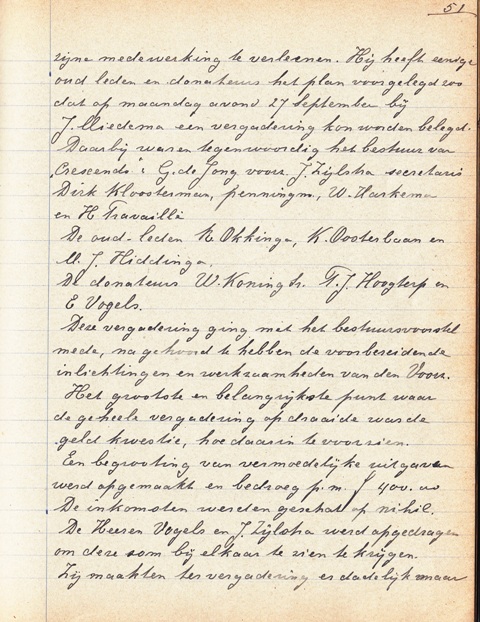 51
zijne medewerking te verleenen. Hij heeft eenige
oud leden en donateurs het plan voorgelegd zoo
dat op maandag avond 27 September bij
J. Miedema een vergadering kon worden belegd.
Daarbij waren tegenwoordig het bestuur van
"Crescendo": G. de Jong voorz. J. Zijlstra secretaris
Dirk Kloosterman, penningm, W. Harkema
en H Travaillé
De oud-leden R. Okkinga, K. Oosterbaan en
M. J. Hiddinga.
De donateurs W. Koning Fr. J. Hoogterp en
E Vogels.
Deze vergadering ging met het bestuursvoorstel
mede, na gehoord te hebben de voorbereidende
inlichtingen en werkzaamheden van den Voorz.
Het grootste en belangrijkste punt waar
de geheele vergadering op draaide was de
geld kwestie, hoe daarin te voorzien.
Een begrooting van vermoedelijke uitgaven
werd opgemaakt en bedroeg p.m. ƒ 400.00
De inkomsten werden geschat op nihil.
De Heeren Vogels en J. Zijlstra werd opgedragen
om deze som bij elkaar te zien te krijgen.
Zij maakten ter vergadering er dadelijk maar